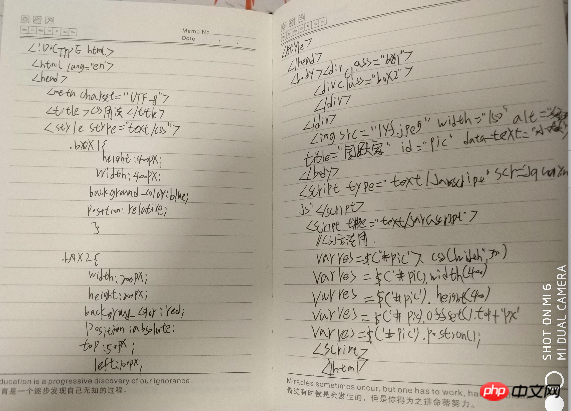 Memo No.
Date
<!DOCTYPE html>
<html lang="en">
<head>
<meta charset="UTF-8">
<title>CSS </title>
<style stype="text/css">
.box1{
height:400px;
width:400px;
background-color:blue;
position:relative;
}
.box2{
width:200px;
height:200px;
background-color:red;
position:absolute;
top:50px;
left:50px;
ducation is a progressive discovery of our ignorance
育是一个逐步发现自己无知的过程.
</style>
</head>
<body><div class="box1">
<div class="box2">
</div>
</div>
<img src= width="150" alt=
title= id="pic" data-text=
</body>
<script type="text/javascript" scr=
js </script>
<script type="text/javascript">
var res=$("#pic").css("width",
var res=$("#pic").width(400)
var res=$("#pic").height(400)
var res=$("#pic").offset().top+"px"
var res=$("#pic").position();
</script>
</html>
Miracles sometimes occur, but one has to work, ha
的，但是你得为之拼命努力。
SHOT ON MI 6
MI DUAL CAMERA
php中文网